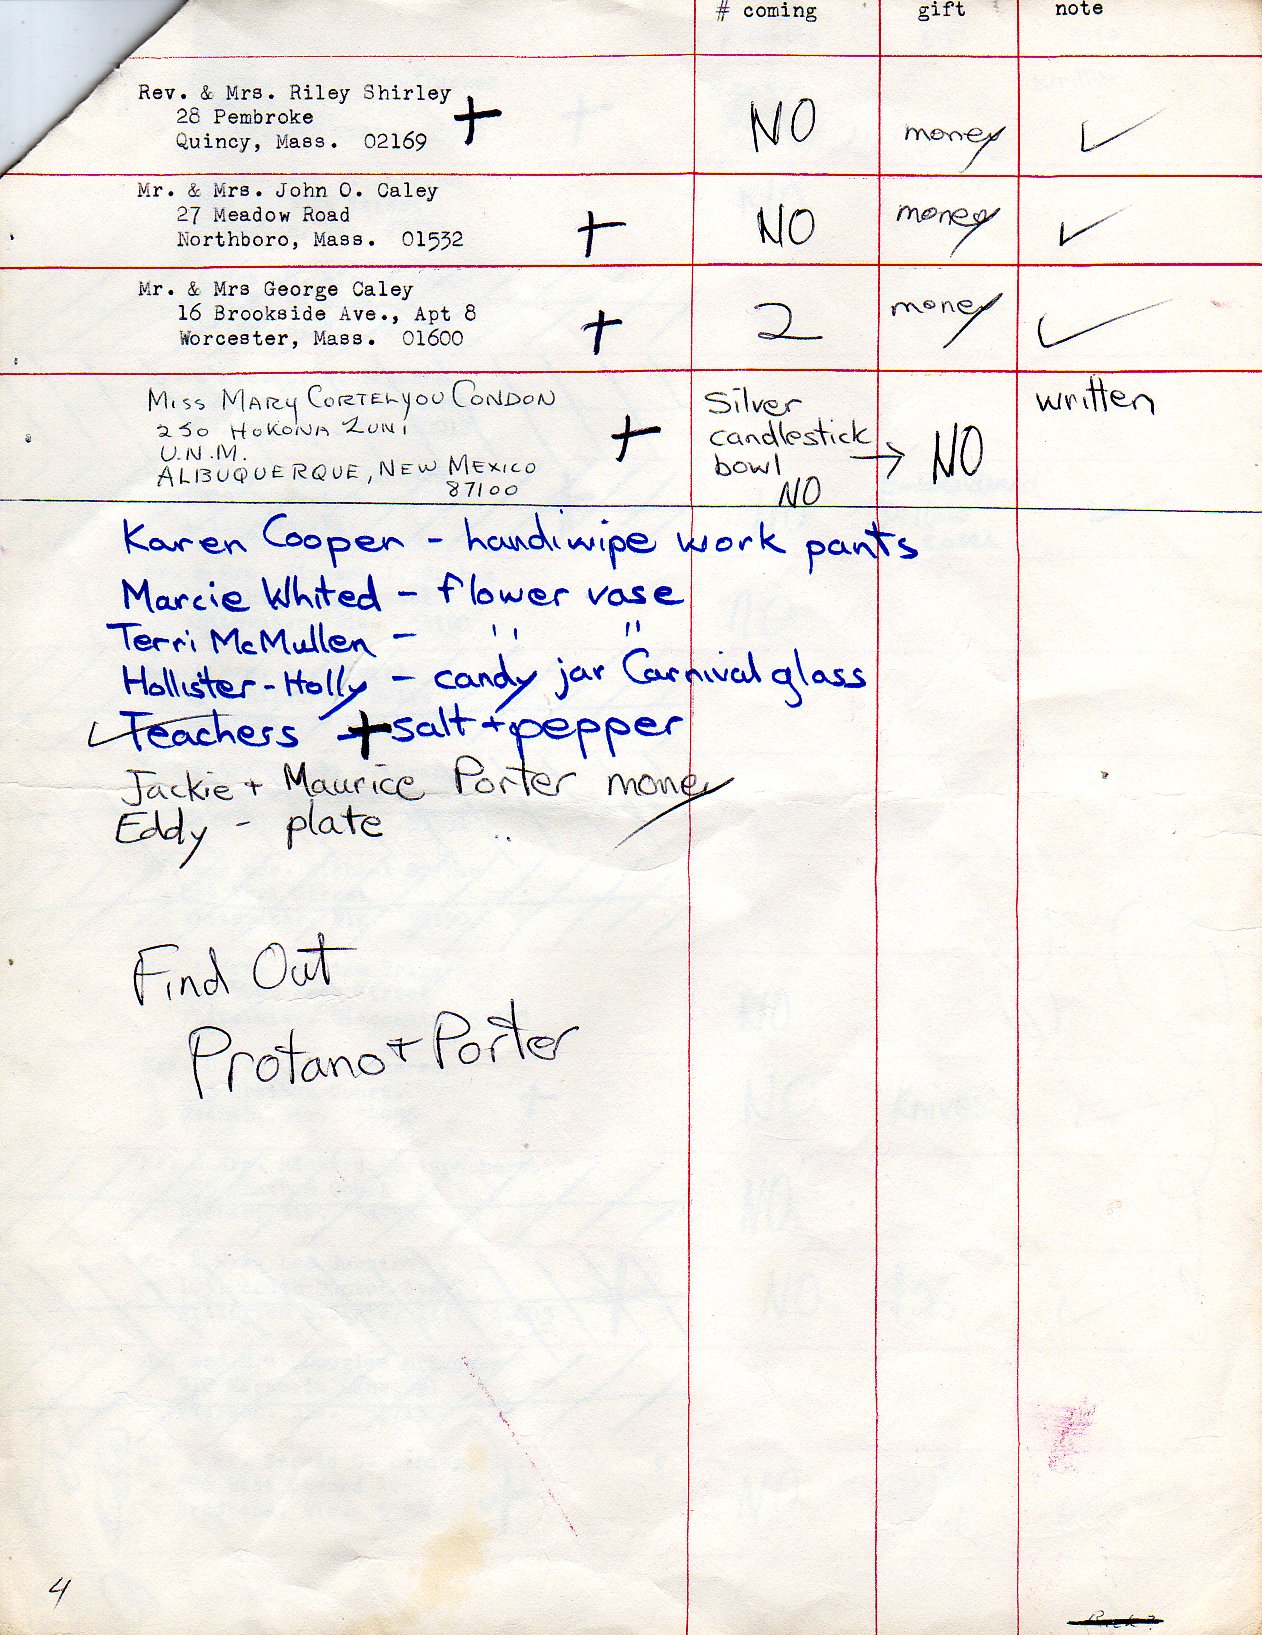 # coming gift note
Rev. & Mrs. Riley Shirley
28 Pembroke
Quincy, Mass. 02169
+ NO money ✓
Mr. & Mrs. John O. Caley
27 Meadow Road
Northboro, Mass. 01532
+ NO money ✓
Mr. & Mrs George Caley
16 Brookside Ave., Apt 8
Worcester, Mass. 01600
+ 2 money ✓
MISS MARY CORTELYOU CONDON
250 HOKONA ZUNI
U.N.M.
ALBUQUERQUE, NEW MEXICO
87100
+
Silver
candlestick
bowl → NO
NO
written
Karen Cooper - handiwipe work pants
Marcie Whited - flower vase
Terri McMullen - " "
Hollister-Holly - candy jar Carnival glass
✓ Teachers + salt + pepper
Jackie + Maurice Porter money
Eddy - plate
Find Out
Protano + Porter
4